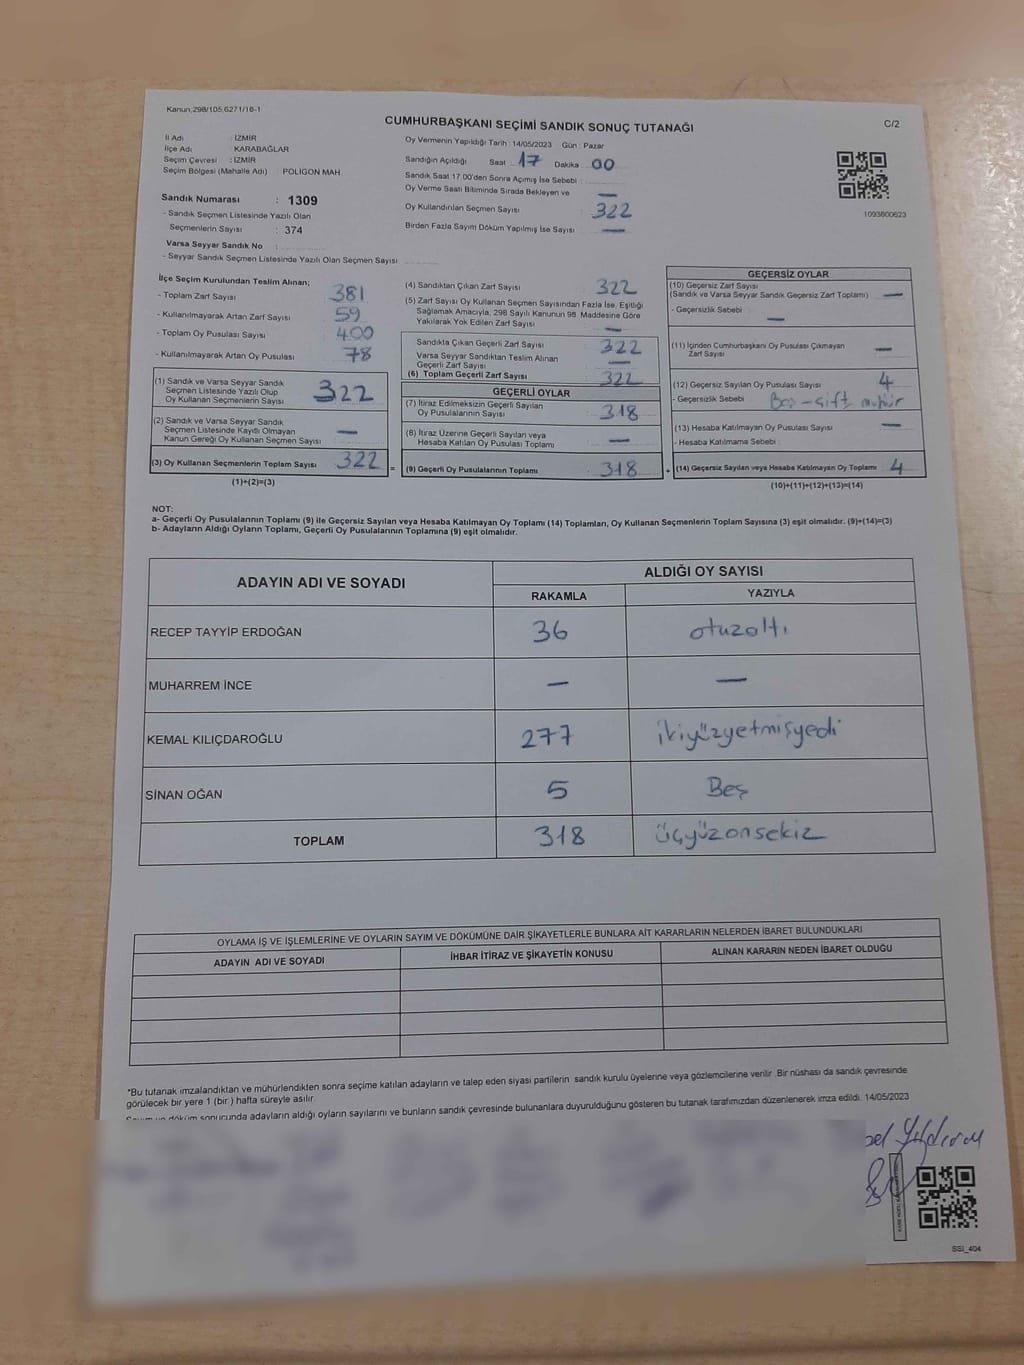 Kanun;298/105,6271/16-1
CUMHURBAŞKANI SEÇİMİ SANDIK SONUÇ TUTANAĞI
C/2
İl Adı : İZMİR
İlçe Adı : KARABAĞLAR
Seçim Çevresi : İZMİR
Seçim Bölgesi (Mahalle Adı) POLİGON MAH
Sandık Numarası : 1309
- Sandık Seçmen Listesinde Yazılı Olan
Seçmenlerin Sayısı : 374
Varsa Seyyar Sandık No :
- Seyyar Sandık Seçmen Listesinde Yazılı Olan Seçmen Sayısı
Oy Vermenin Yapıldığı Tarih : 14/05/2023 Gün : Pazar
Sandığın Açıldığı Saat 17 Dakika 00
Sandık Saat 17.00'den Sonra Açımış İse Sebebi :
Oy Verme Saati Bitiminde Sırada Bekleyen ve —
Oy Kullandırılan Seçmen Sayısı : 322
Birden Fazla Sayım Döküm Yapılmış İse Sayısı —
1093600623
İlçe Seçim Kurulundan Teslim Alınan;
- Toplam Zarf Sayısı 381
- Kullanılmayarak Artan Zarf Sayısı 59
- Toplam Oy Pusulası Sayısı 400
- Kullanılmayarak Artan Oy Pusulası 78
(1) Sandık ve Varsa Seyyar Sandık
Seçmen Listesinde Yazılı Olup
Oy Kullanan Seçmenlerin Sayısı 322
(2) Sandık ve Varsa Seyyar Sandık
Seçmen Listesinde Kayıtlı Olmayan
Kanun Gereği Oy Kullanan Seçmen Sayısı —
(3) Oy Kullanan Seçmenlerin Toplam Sayısı 322 =
(1)+(2)=(3)
(4) Sandıktan Çıkan Zarf Sayısı 322
(5) Zarf Sayısı Oy Kullanan Seçmen Sayısından Fazla İse, Eşitliği
Sağlamak Amacıyla, 298 Sayılı Kanunun 98. Maddesine Göre
Yakılarak Yok Edilen Zarf Sayısı —
Sandıkta Çıkan Geçerli Zarf Sayısı 322
Varsa Seyyar Sandıktan Teslim Alınan
Geçerli Zarf Sayısı —
(6) Toplam Geçerli Zarf Sayısı 322
GEÇERLİ OYLAR
(7) İtiraz Edilmeksizin Geçerli Sayılan
Oy Pusulalarının Sayısı : 318
(8) İtiraz Üzerine Geçerli Sayılan veya
Hesaba Katılan Oy Pusulası Toplamı —
(9) Geçerli Oy Pusulalarının Toplamı : 318 +
GEÇERSİZ OYLAR
(10) Geçersiz Zarf Sayısı
(Sandık ve Varsa Seyyar Sandık Geçersiz Zarf Toplamı) —
- Geçersizlik Sebebi : —
(11) İçinden Cumhurbaşkanı Oy Pusulası Çıkmayan
Zarf Sayısı —
(12) Geçersiz Sayılan Oy Pusulası Sayısı 4
- Geçersizlik Sebebi Boş-çift mühür
(13) Hesaba Katılmayan Oy Pusulası Sayısı —
- Hesaba Katılmama Sebebi :
(14) Geçersiz Sayılan veya Hesaba Katılmayan Oy Toplamı 4
(10)+(11)+(12)+(13)=(14)
NOT:
a- Geçerli Oy Pusulalarının Toplamı (9) ile Geçersiz Sayılan veya Hesaba Katılmayan Oy Toplamı (14) Toplamları, Oy Kullanan Seçmenlerin Toplam Sayısına (3) eşit olmalıdır. (9)+(14)=(3)
b- Adayların Aldığı Oyların Toplamı, Geçerli Oy Pusulalarının Toplamına (9) eşit olmalıdır.
ADAYIN ADI VE SOYADI
ALDIĞI OY SAYISI
RAKAMLA YAZIYLA
RECEP TAYYİP ERDOĞAN 36 otuzaltı
MUHARREM İNCE — —
KEMAL KILIÇDAROĞLU 277 ikiyüzyetmişyedi
SİNAN OĞAN 5 Beş
TOPLAM 318 üçyüzonsekiz
OYLAMA İŞ VE İŞLEMLERİNE VE OYLARIN SAYIM VE DÖKÜMÜNE DAİR ŞİKAYETLERLE BUNLARA AİT KARARLARIN NELERDEN İBARET BULUNDUKLARI
ADAYIN ADI VE SOYADI İHBAR İTİRAZ VE ŞİKAYETİN KONUSU ALINAN KARARIN NEDEN İBARET OLDUĞU
*Bu tutanak imzalandıktan ve mühürlendikten sonra seçime katılan adayların ve talep eden siyasi partilerin sandık kurulu üyelerine veya gözlemcilerine verilir .Bir nüshası da sandık çevresinde
görülecek bir yere 1 (bir ) hafta süreyle asılır.
döküm sonucunda adayların aldığı oyların sayılarını ve bunların sandık çevresinde bulunanlara duyurulduğunu gösteren bu tutanak tarafımızdan düzenlenerek imza edildi. 14/05/2023
Yıldırım
SSI_404